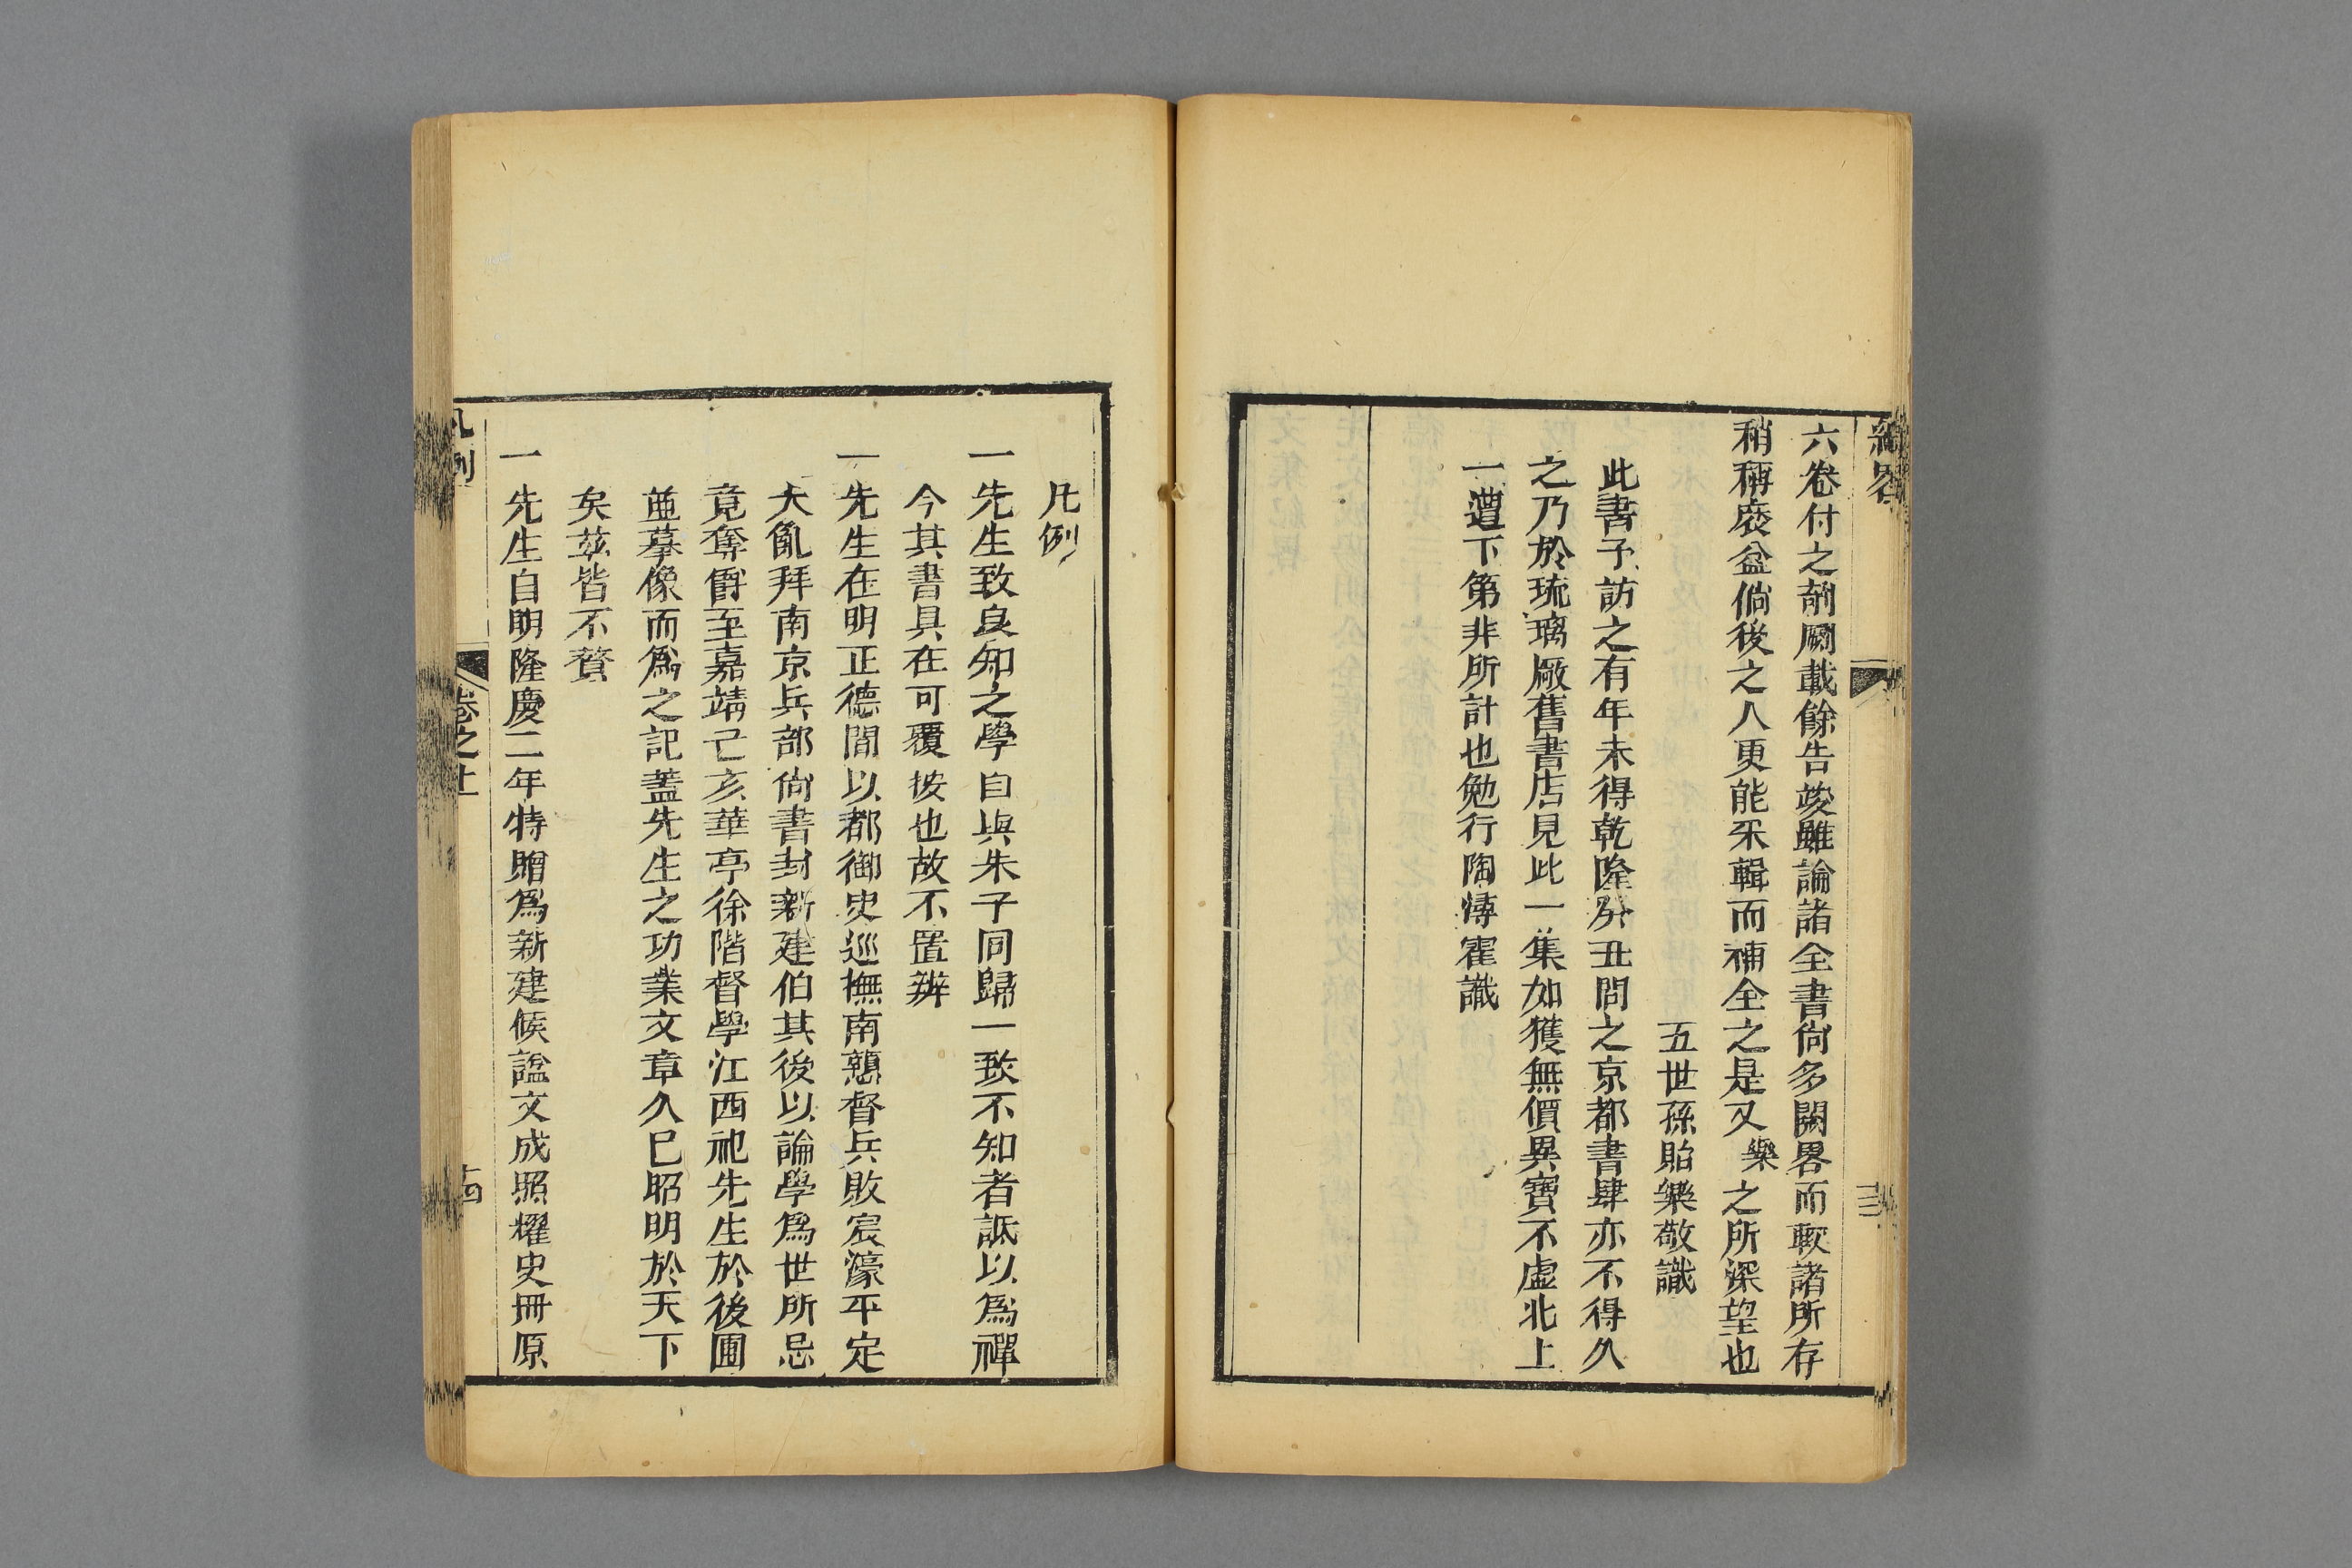 六卷付之剞劂載餘告竣雖論諸全書尙多闕畧而較諸所存
稍稱庶益倘後之人更能采輯而補全之是又樂之所深望也
五世孫貽樂敬識
此書予訪之有年未得乾隆癸丑問之京都書肆亦不得久
之乃於琉璃厰舊書店見此一集如獲無價異寶不虛北上
一遭下第非所計也勉行陶潯霍識
凡例
一先生致良知之學自與朱子同歸一致不知者詆以爲禪
今其書具在可覆按也故不置辨
一先生在明正德間以都御史巡撫南贛督兵敗宸濠平定
大亂拜南京兵部尙書封新建伯其後以論學爲世所忌
竟奪爵至嘉靖己亥華亭徐階督學江西祀先生於後圃
並摹像而爲之記蓋先生之功業文章久已昭明於天下
矣茲皆不贅
一先生自明隆慶二年特贈爲新建侯諡文成照耀史冊原
凡例
卷之上
十四